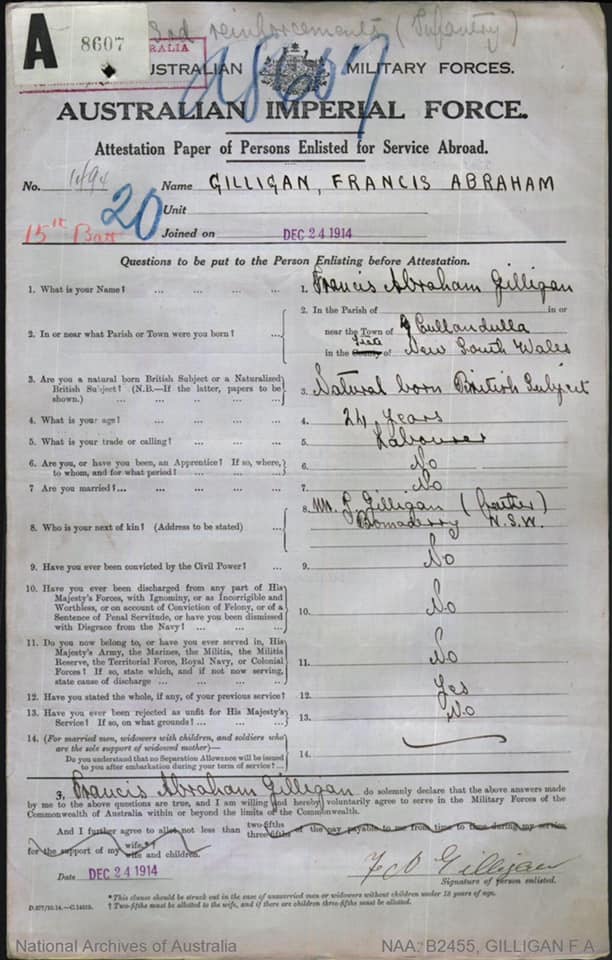 3rd reinforcements (Infantry)
A 8607
RALIA
AUSTRALIAN MILITARY FORCES.
AUSTRALIAN IMPERIAL FORCE.
Attestation Paper of Persons Enlisted for Service Abroad.
No. Name GILLIGAN, FRANCIS ABRAHAM
20 Unit
15th Batt Joined on DEC 24 1914
Questions to be put to the Person Enlisting before Attestation.
1. What is your Name? ... ... ... ... 1. Francis Abraham Gilligan
2. In the Parish of in or
near the Town of Cullendulla
2. In or near what Parish or Town were you born? ...
in the County State of New South Wales
3. Are you a natural born British Subject or a Naturalized
British Subject? (N.B.—If the latter, papers to be
shown.) ... ... ... ... ... 3. Natural born British Subject
4. What is your age? ... ... ... ... 4. 24 Years
5. What is your trade or calling? ... ... ... 5. Labourer
6. Are you, or have you been, an Apprentice? If so, where,
to whom, and for what period? ... ... ... 6. No
7 Are you married?... ... ... ... ... 7. No
8. Mr. Gilligan (father)
8. Who is your next of kin? (Address to be stated) ... Bomaderry N.S.W.
9. Have you ever been convicted by the Civil Power? ... 9. No
10. Have you ever been discharged from any part of His
Majesty's Forces, with Ignominy, or as Incorrigible and
Worthless, or on account of Conviction of Felony, or of a
Sentence of Penal Servitude, or have you been dismissed
with Disgrace from the Navy? ... ... ... 10. No
11. Do you now belong to, or have you ever served in, His
Majesty's Army, the Marines, the Militia, the Militia
Reserve, the Territorial Force, Royal Navy, or Colonial
Forces? If so, state which, and if not now serving,
state cause of discharge ... ... ... ... 11. No
12. Have you stated the whole, if any, of your previous service? 12. Yes
13. Have you ever been rejected as unfit for His Majesty's
Service? If so, on what grounds? ... ... ... 13. No
14. (For married men, widowers with children, and soldiers who
are the sole support of widowed mother)—
Do you understand that no Separation Allowance will be issued
to you after embarkation during your term of service?... 14.
I, Francis Abraham Gilligan do solemnly declare that the above answers made
by me to the above questions are true, and I am willing and hereby voluntarily agree to serve in the Military Forces of the
Commonwealth of Australia within or beyond the limits of the Commonwealth.
And I further agree to allot not less than two-fifths three-fifths of the pay payable to me from time to time during my service
for the support of my wife.*† wife and children.
Date DEC 24 1914 F A Gilligan
Signature of person enlisted.
* This clause should be struck out in the case of unmarried men or widowers without children under 18 years of age.
† Two-fifths must be allotted to the wife, and if there are children three-fifths must be allotted.
National Archives of Australia NAA: B2455, GILLIGAN F A